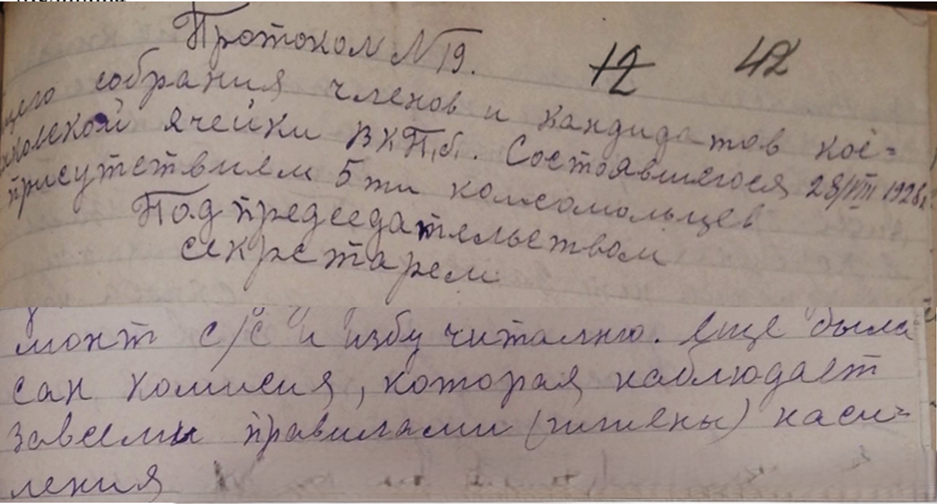 Протокол №19.
12 42
щего собрания членов и кандидатов кос=
ковской ячейки ВКП,б,. Состоявшегося 28/VIII 1928г.
присутствием 5ти комсомольцев
Под председательством
секретарем
монт с/с и избу читалню. Еще была
сан комисия, которая наблюдает
завсеми правилами (гигиены) насе=
ления